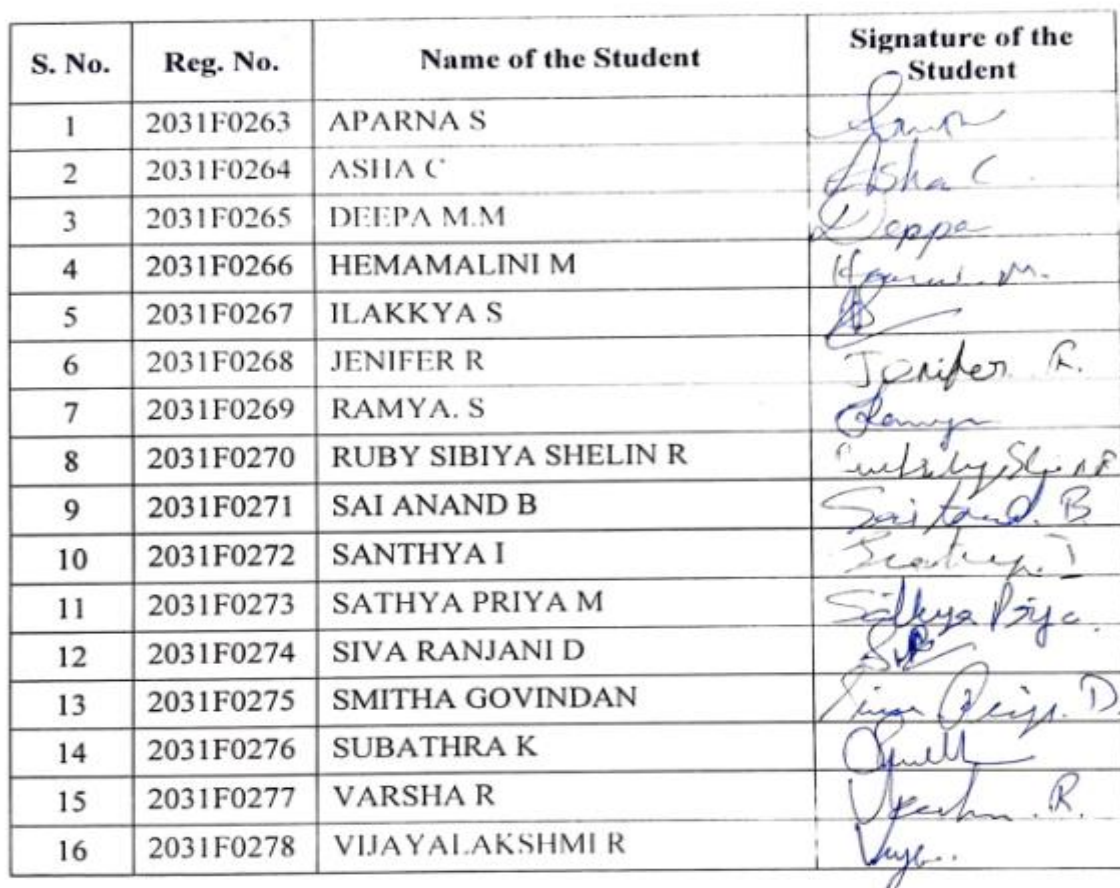 S. No. Reg. No. Name of the Student Signature of the Student
1 2031F0263 APARNA S
2 2031F0264 ASHA C Asha C
3 2031F0265 DEEPA M.M Deppa
4 2031F0266 HEMAMALINI M
5 2031F0267 ILAKKYA S
6 2031F0268 JENIFER R Jenifer R.
7 2031F0269 RAMYA. S Ramya
8 2031F0270 RUBY SIBIYA SHELIN R
9 2031F0271 SAI ANAND B
10 2031F0272 SANTHYA I
11 2031F0273 SATHYA PRIYA M Sathya Priya
12 2031F0274 SIVA RANJANI D
13 2031F0275 SMITHA GOVINDAN
14 2031F0276 SUBATHRA K
15 2031F0277 VARSHA R
16 2031F0278 VIJAYALAKSHMI R